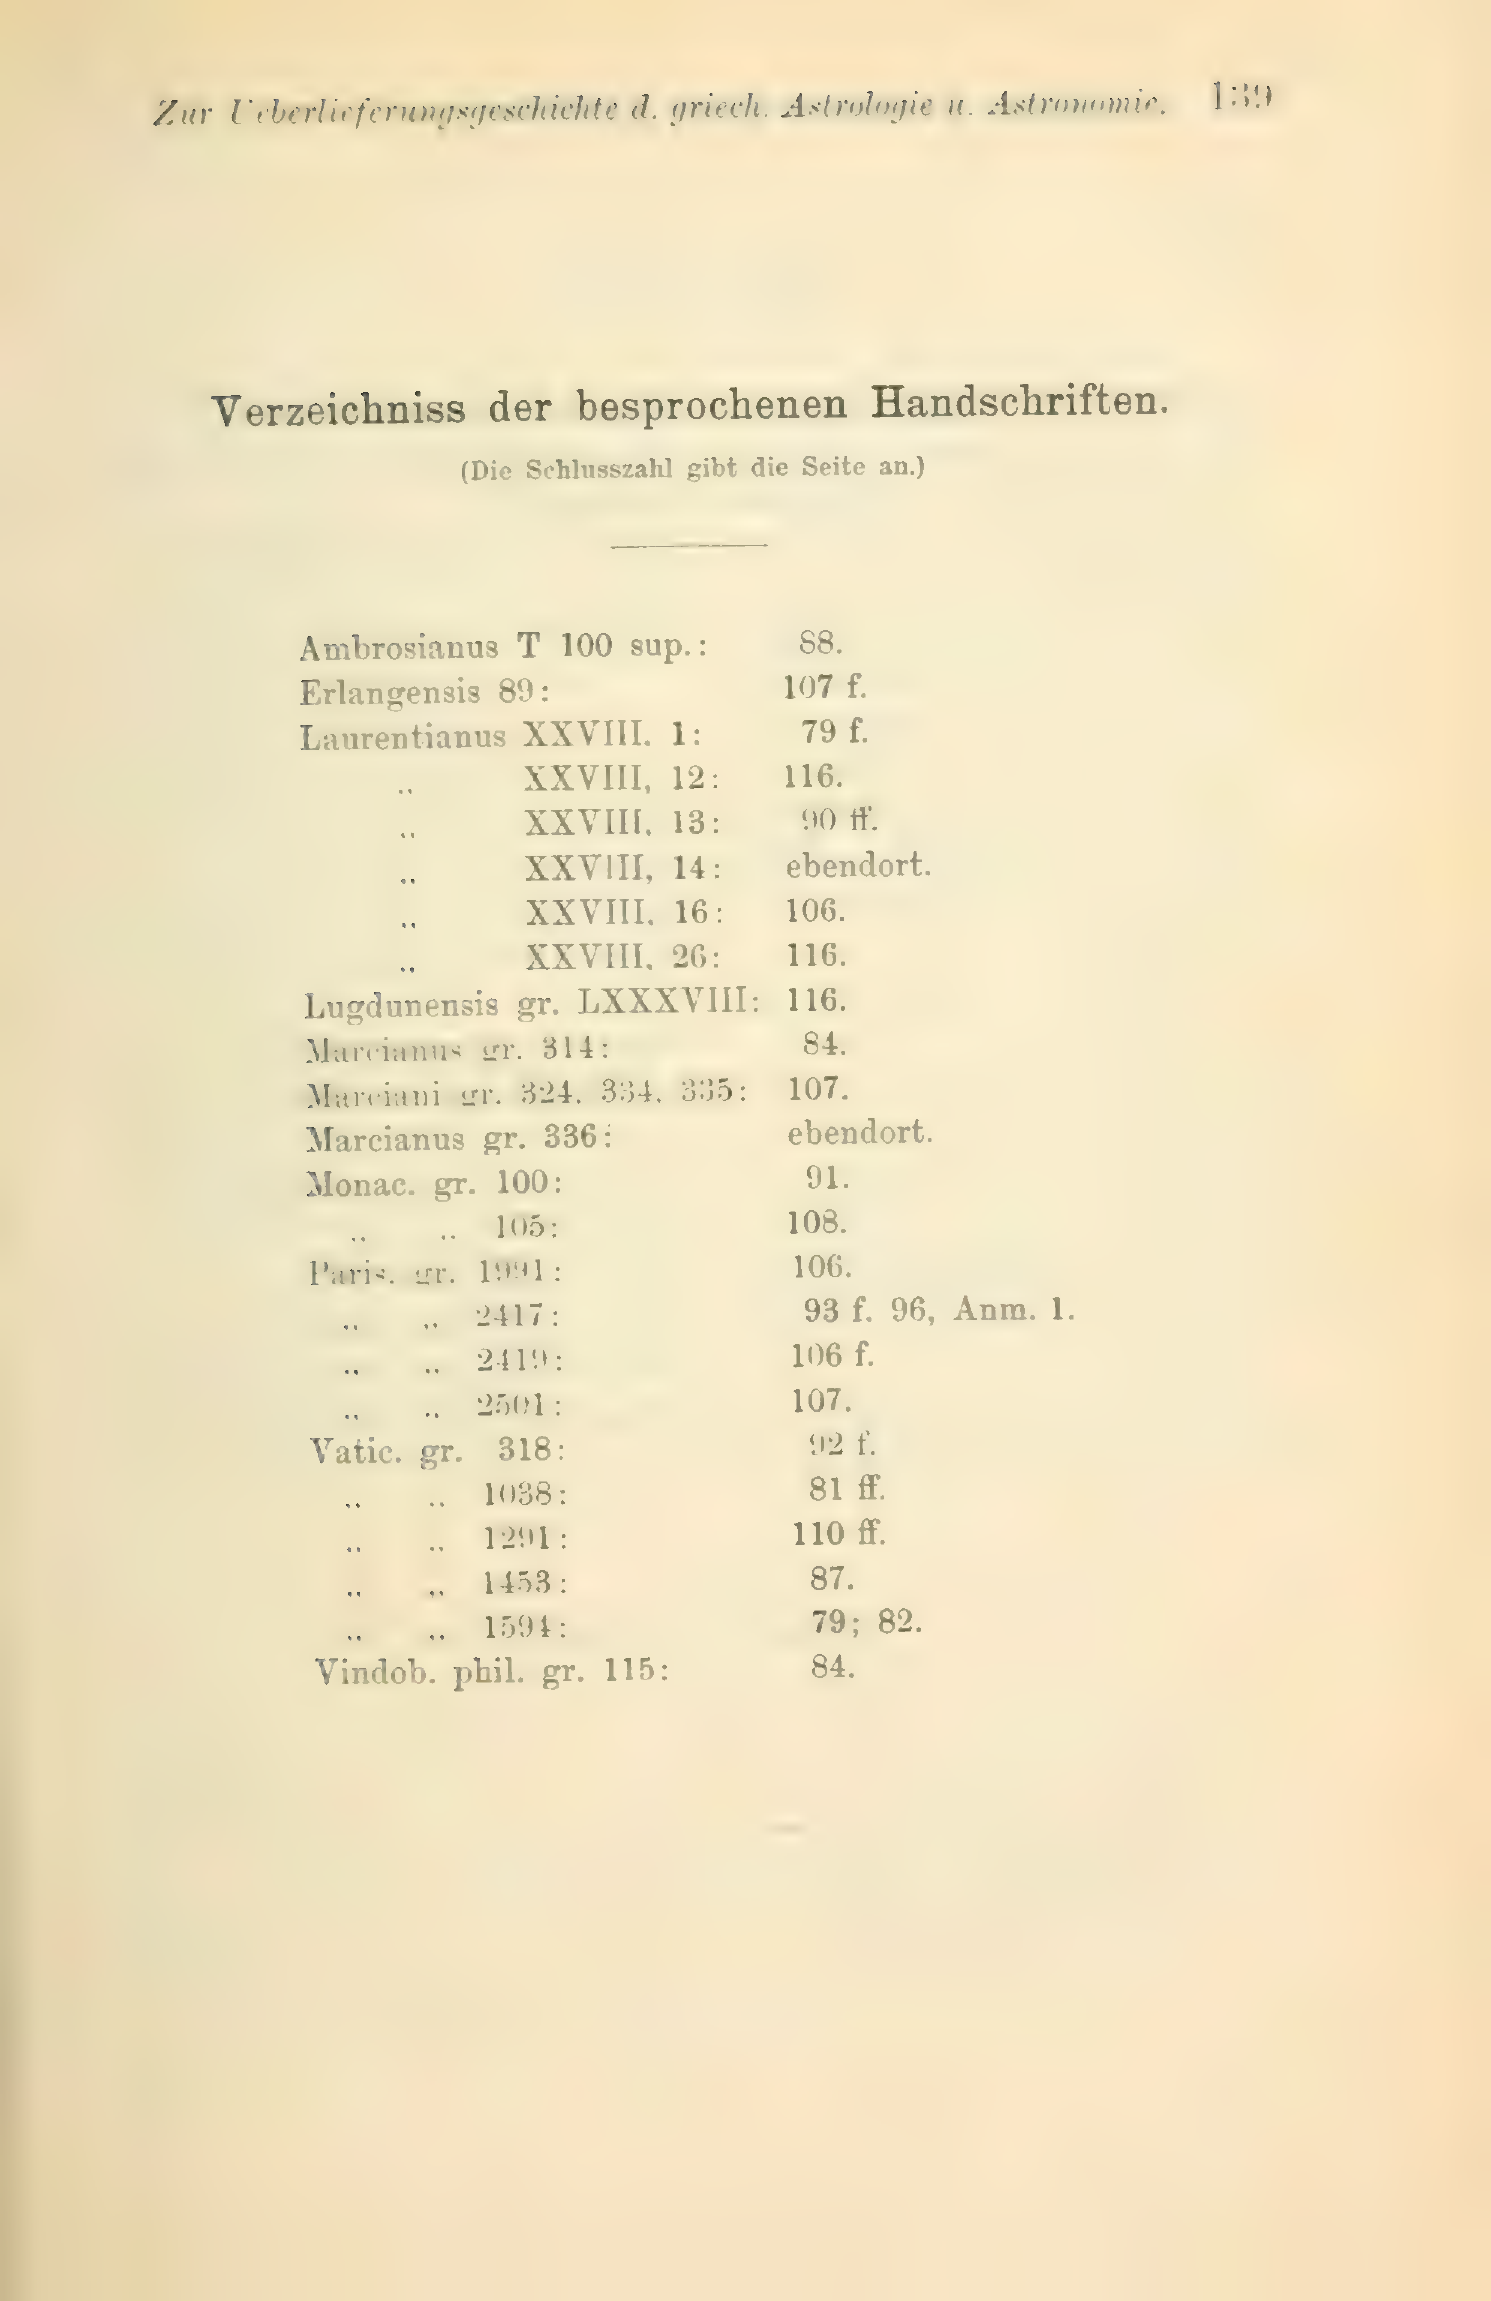 Zur Ueberlieferungsgeschichte d. griech. Astrologie u. Astronomie. 139
Verzeichniss der besprochenen Handschriften.
(Die Schlusszahl gibt die Seite an.)
Ambrosianus T 100 sup.: 88.
Erlangensis 89: 107 f.
Laurentianus XXVIII, 1: 79 f.
„ XXVIII, 12: 116.
„ XXVIII, 13: 90 ff.
„ XXVIII, 14: ebendort.
„ XXVIII, 16: 106.
„ XXVIII, 26: 116.
Lugdunensis gr. LXXXVIII: 116.
Marcianus gr. 314: 84.
Marciani gr. 324, 334, 335: 107.
Marcianus gr. 336: ebendort.
Monac. gr. 100: 91.
„ „ 105: 108.
Paris. gr. 1991: 106.
„ „ 2417: 93 f. 96, Anm. 1.
„ „ 2419: 106 f.
„ „ 2501: 107.
Vatic. gr. 318: 92 f.
„ „ 1038: 81 ff.
„ „ 1291: 110 ff.
„ „ 1453: 87.
„ „ 1594: 79; 82.
Vindob. phil. gr. 115: 84.